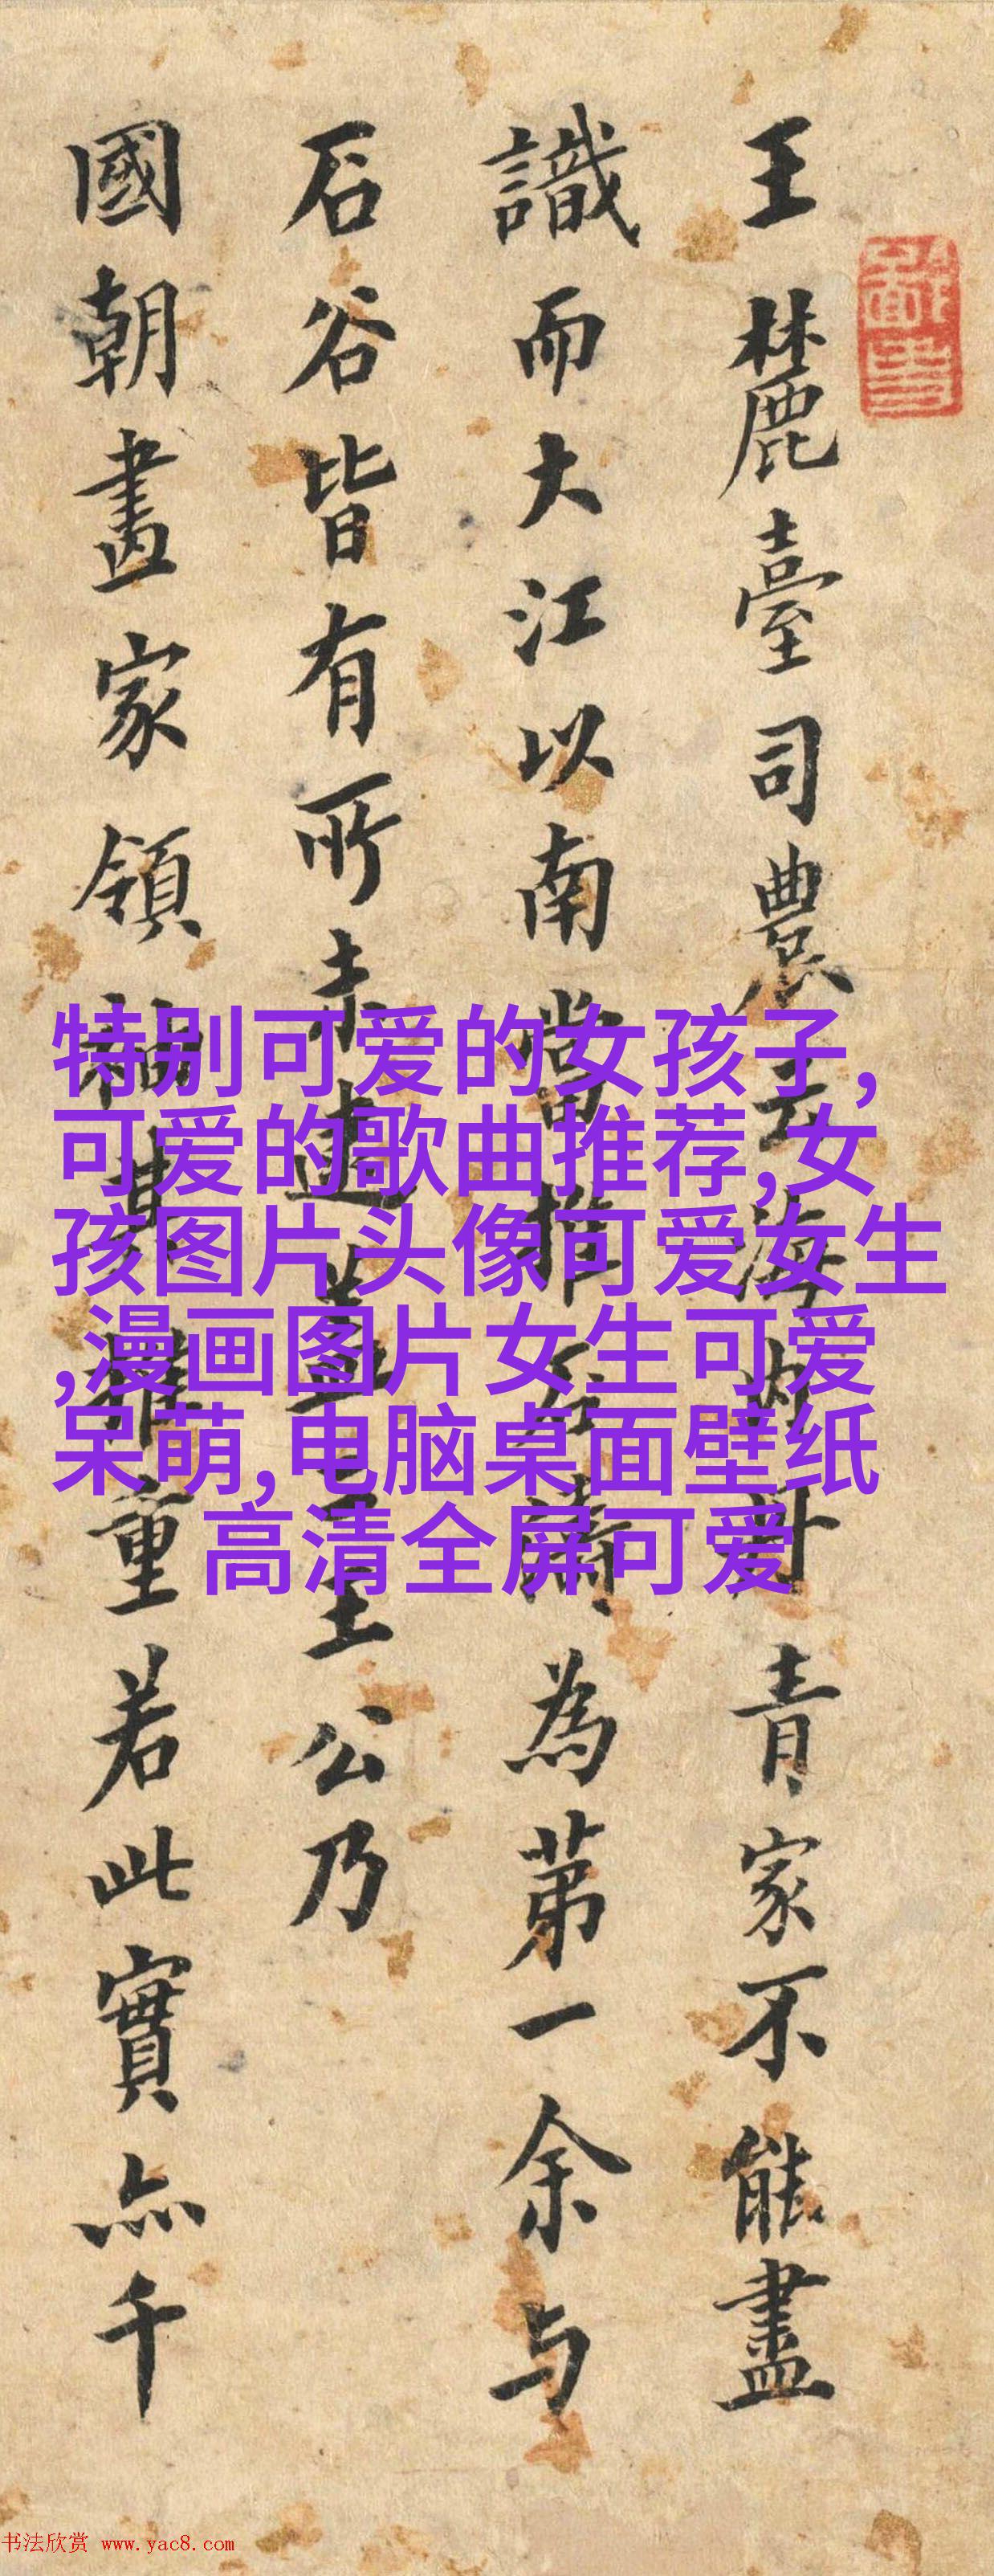 王麓臺司農云海內丹青家不能盡
識而大江以南當推石谷為第一余与
石谷皆有所未逮蓋王公乃
國朝畫家領袖其推重若此實亦千
特别可爱的女孩子,
可爱的歌曲推荐,女
孩图片头像可爱女生
,漫画图片女生可爱
呆萌,电脑桌面壁纸
高清全屏可爱
书法欣赏 www.yac8.com